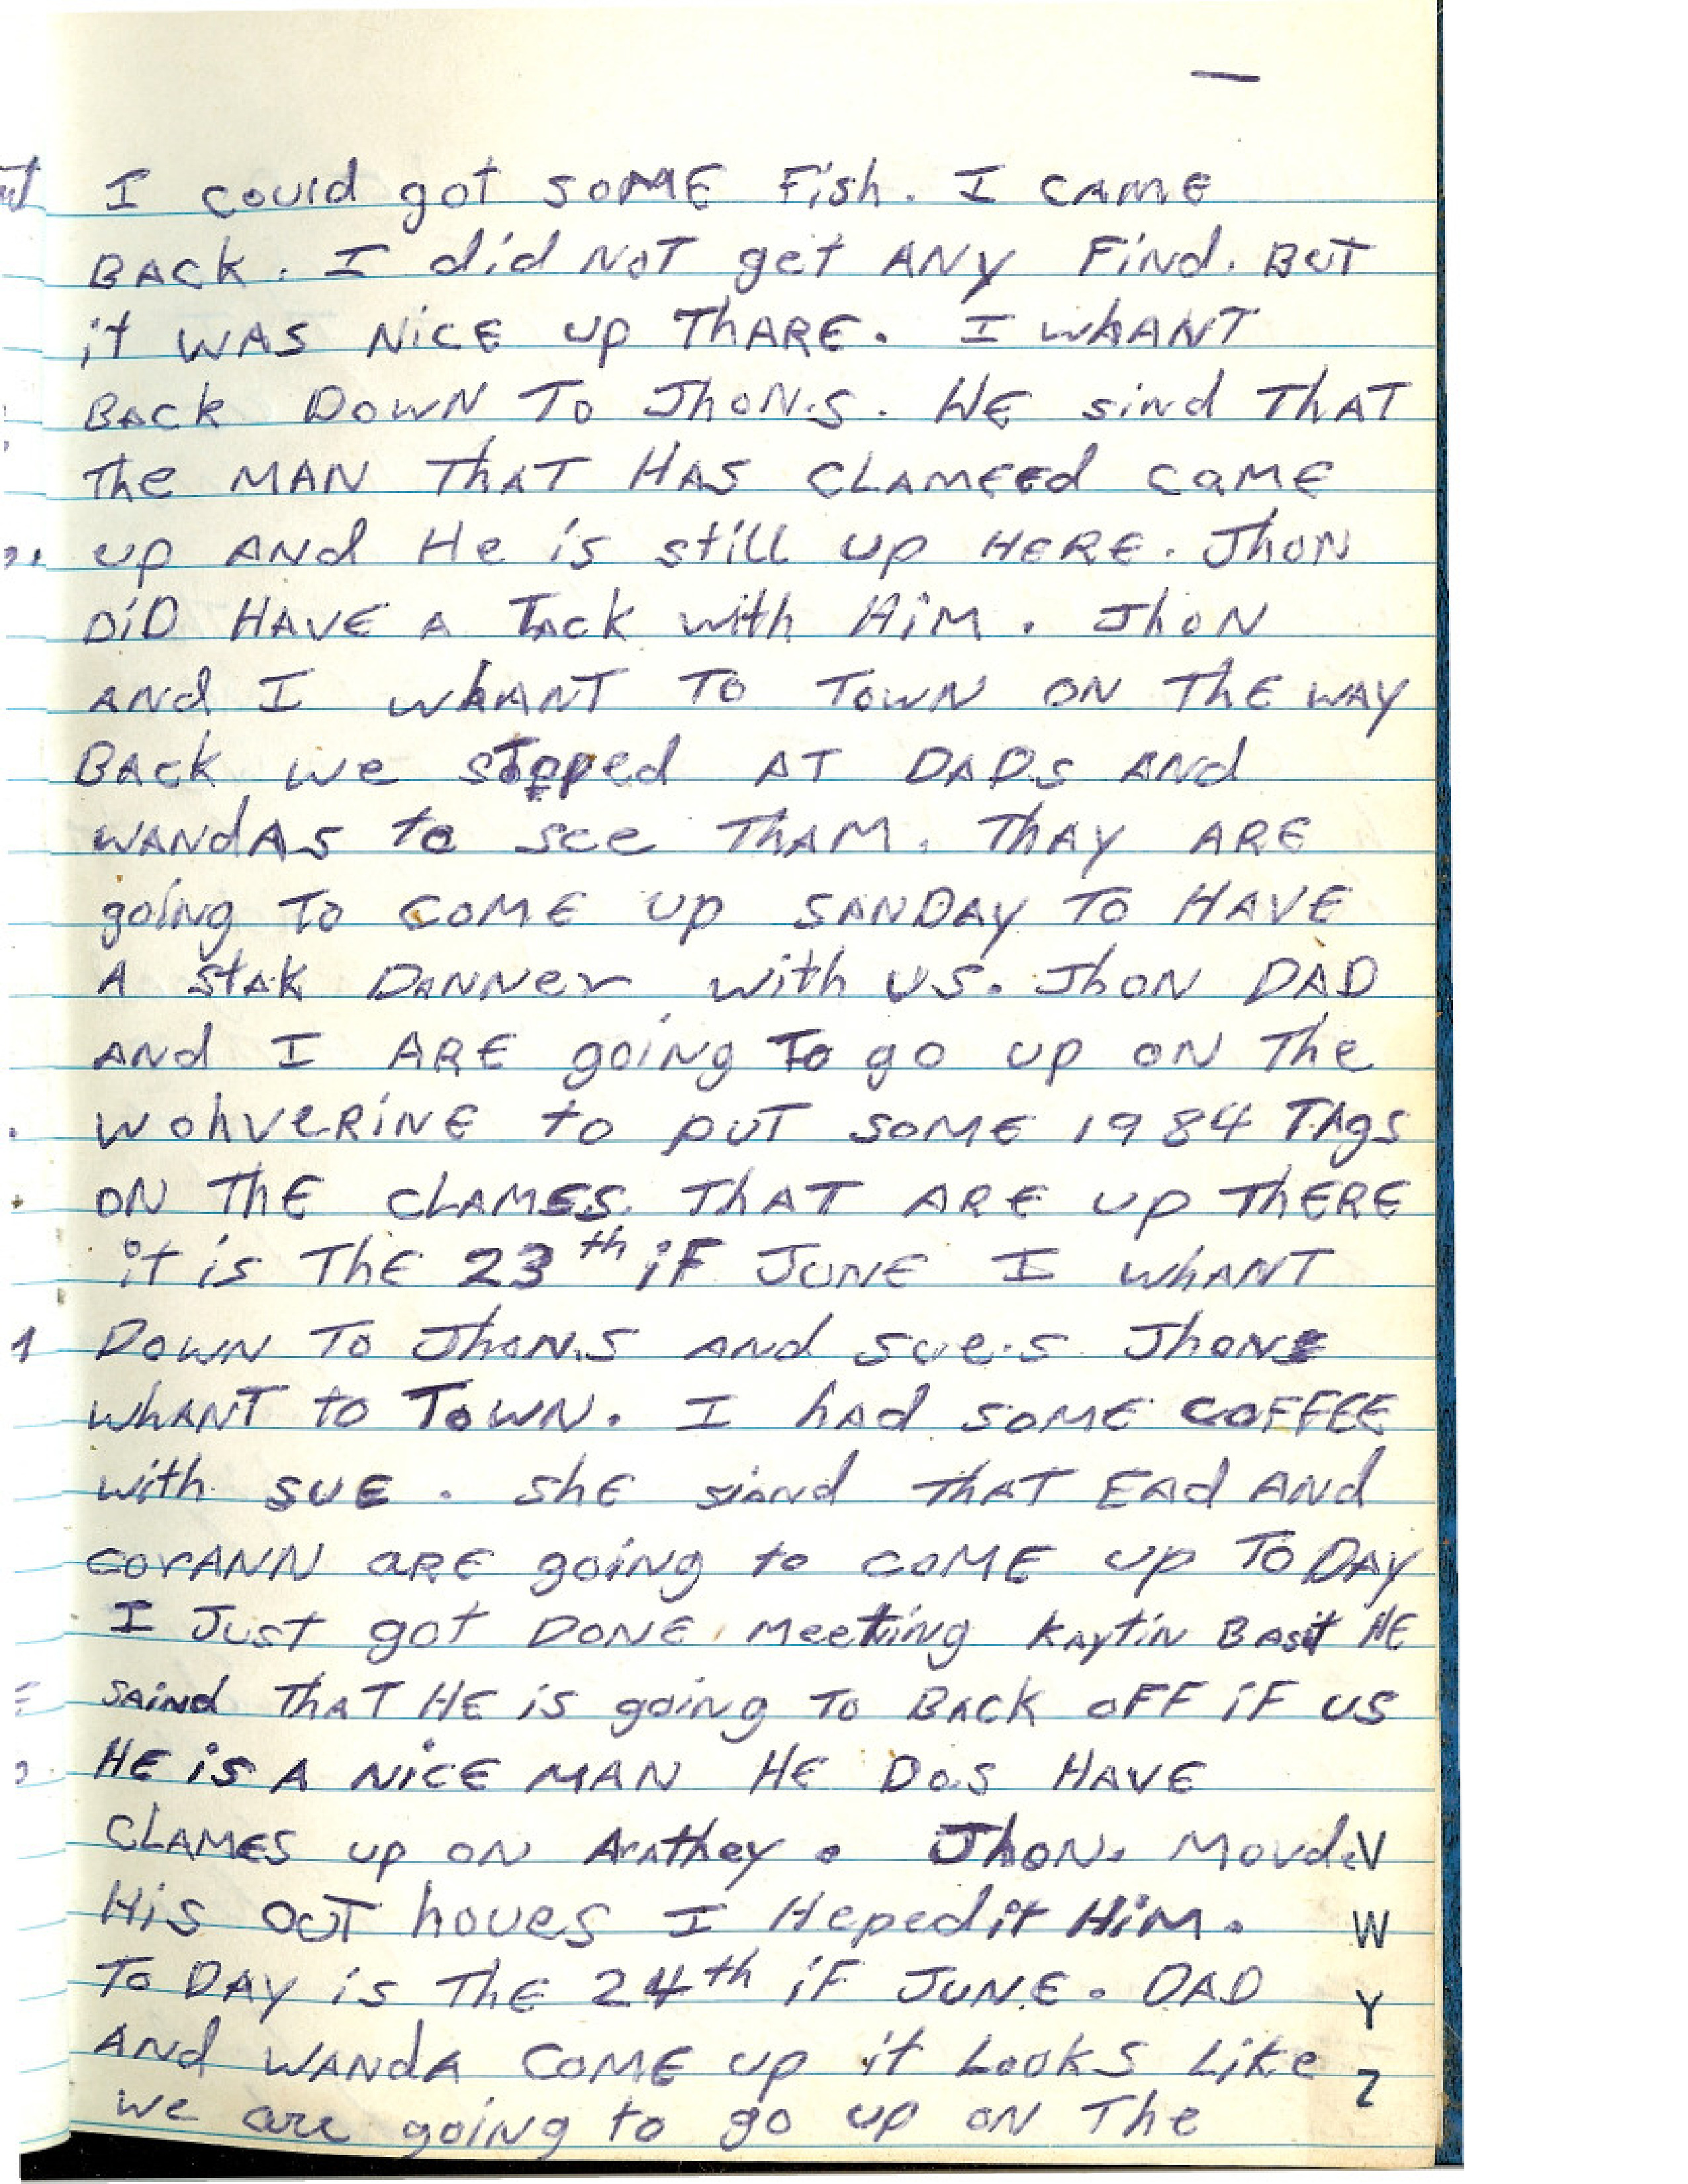 I could got SOME Fish. I CAME
BACK. I did NOT get ANY FiNd. BUT
it WAS NiCE up ThARE. I WhANT
BACK DOWN To JhoN.s. HE sind THAT
The MAN THAT HAS CLAMEEd CAME
up ANd He is still up HERE. JhoN
DiD HAVE A TACK with HiM. JhoN
ANd I WhANT TO TOWN ON THE WAY
BACK we stopped AT DADs ANd
WANdAs to see ThAM. ThAY ARE
going To COME up SANDAY TO HAVE
A stAk DANNer with US. JhON DAD
ANd I ARE going To go up ON The
WohveRiNE to puT SOME 1984 TAgs
ON THE CLAMES. THAT ARE up THERE
it is THE 23th iF JUNE I WhANT
DOWN TO JhoN.S ANd sue.s JhoNs
WhANT to TOWN. I hAd SOME COFFEE
with SUE. ShE siand thAT EAd ANd
CorANN ARE going to COME up TODAY
I JusT got DONE Meeting KAytiN BAsit HE
sAiNd THAT HE is going TO BACK OFF iF US
HE iS A NiCE MAN HE Dos HAVE
CLAMES up ON Arnthey. JhoN. Movd.
His OUT houes I Heped it HiM.
To DAY is The 24th iF JUNE. DAD
ANd WANdA COME up it Looks Like
we are going to go up ON The
V
W
Y
Z